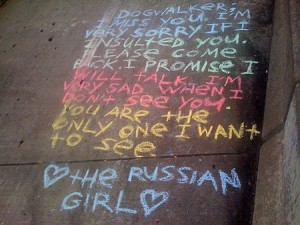 DOGWALKER:
I MISS YOU. I'M
VERY SORRY IF I
INSULTED YOU.
PLEASE COME
BACK. I PROMISE I
WILL TALK. I'M
VERY SAD WHEN I
DON'T SEE YOU.
YOU ARE THE
ONLY ONE I WANT
TO SEE
♡THE RUSSIAN
GIRL♡